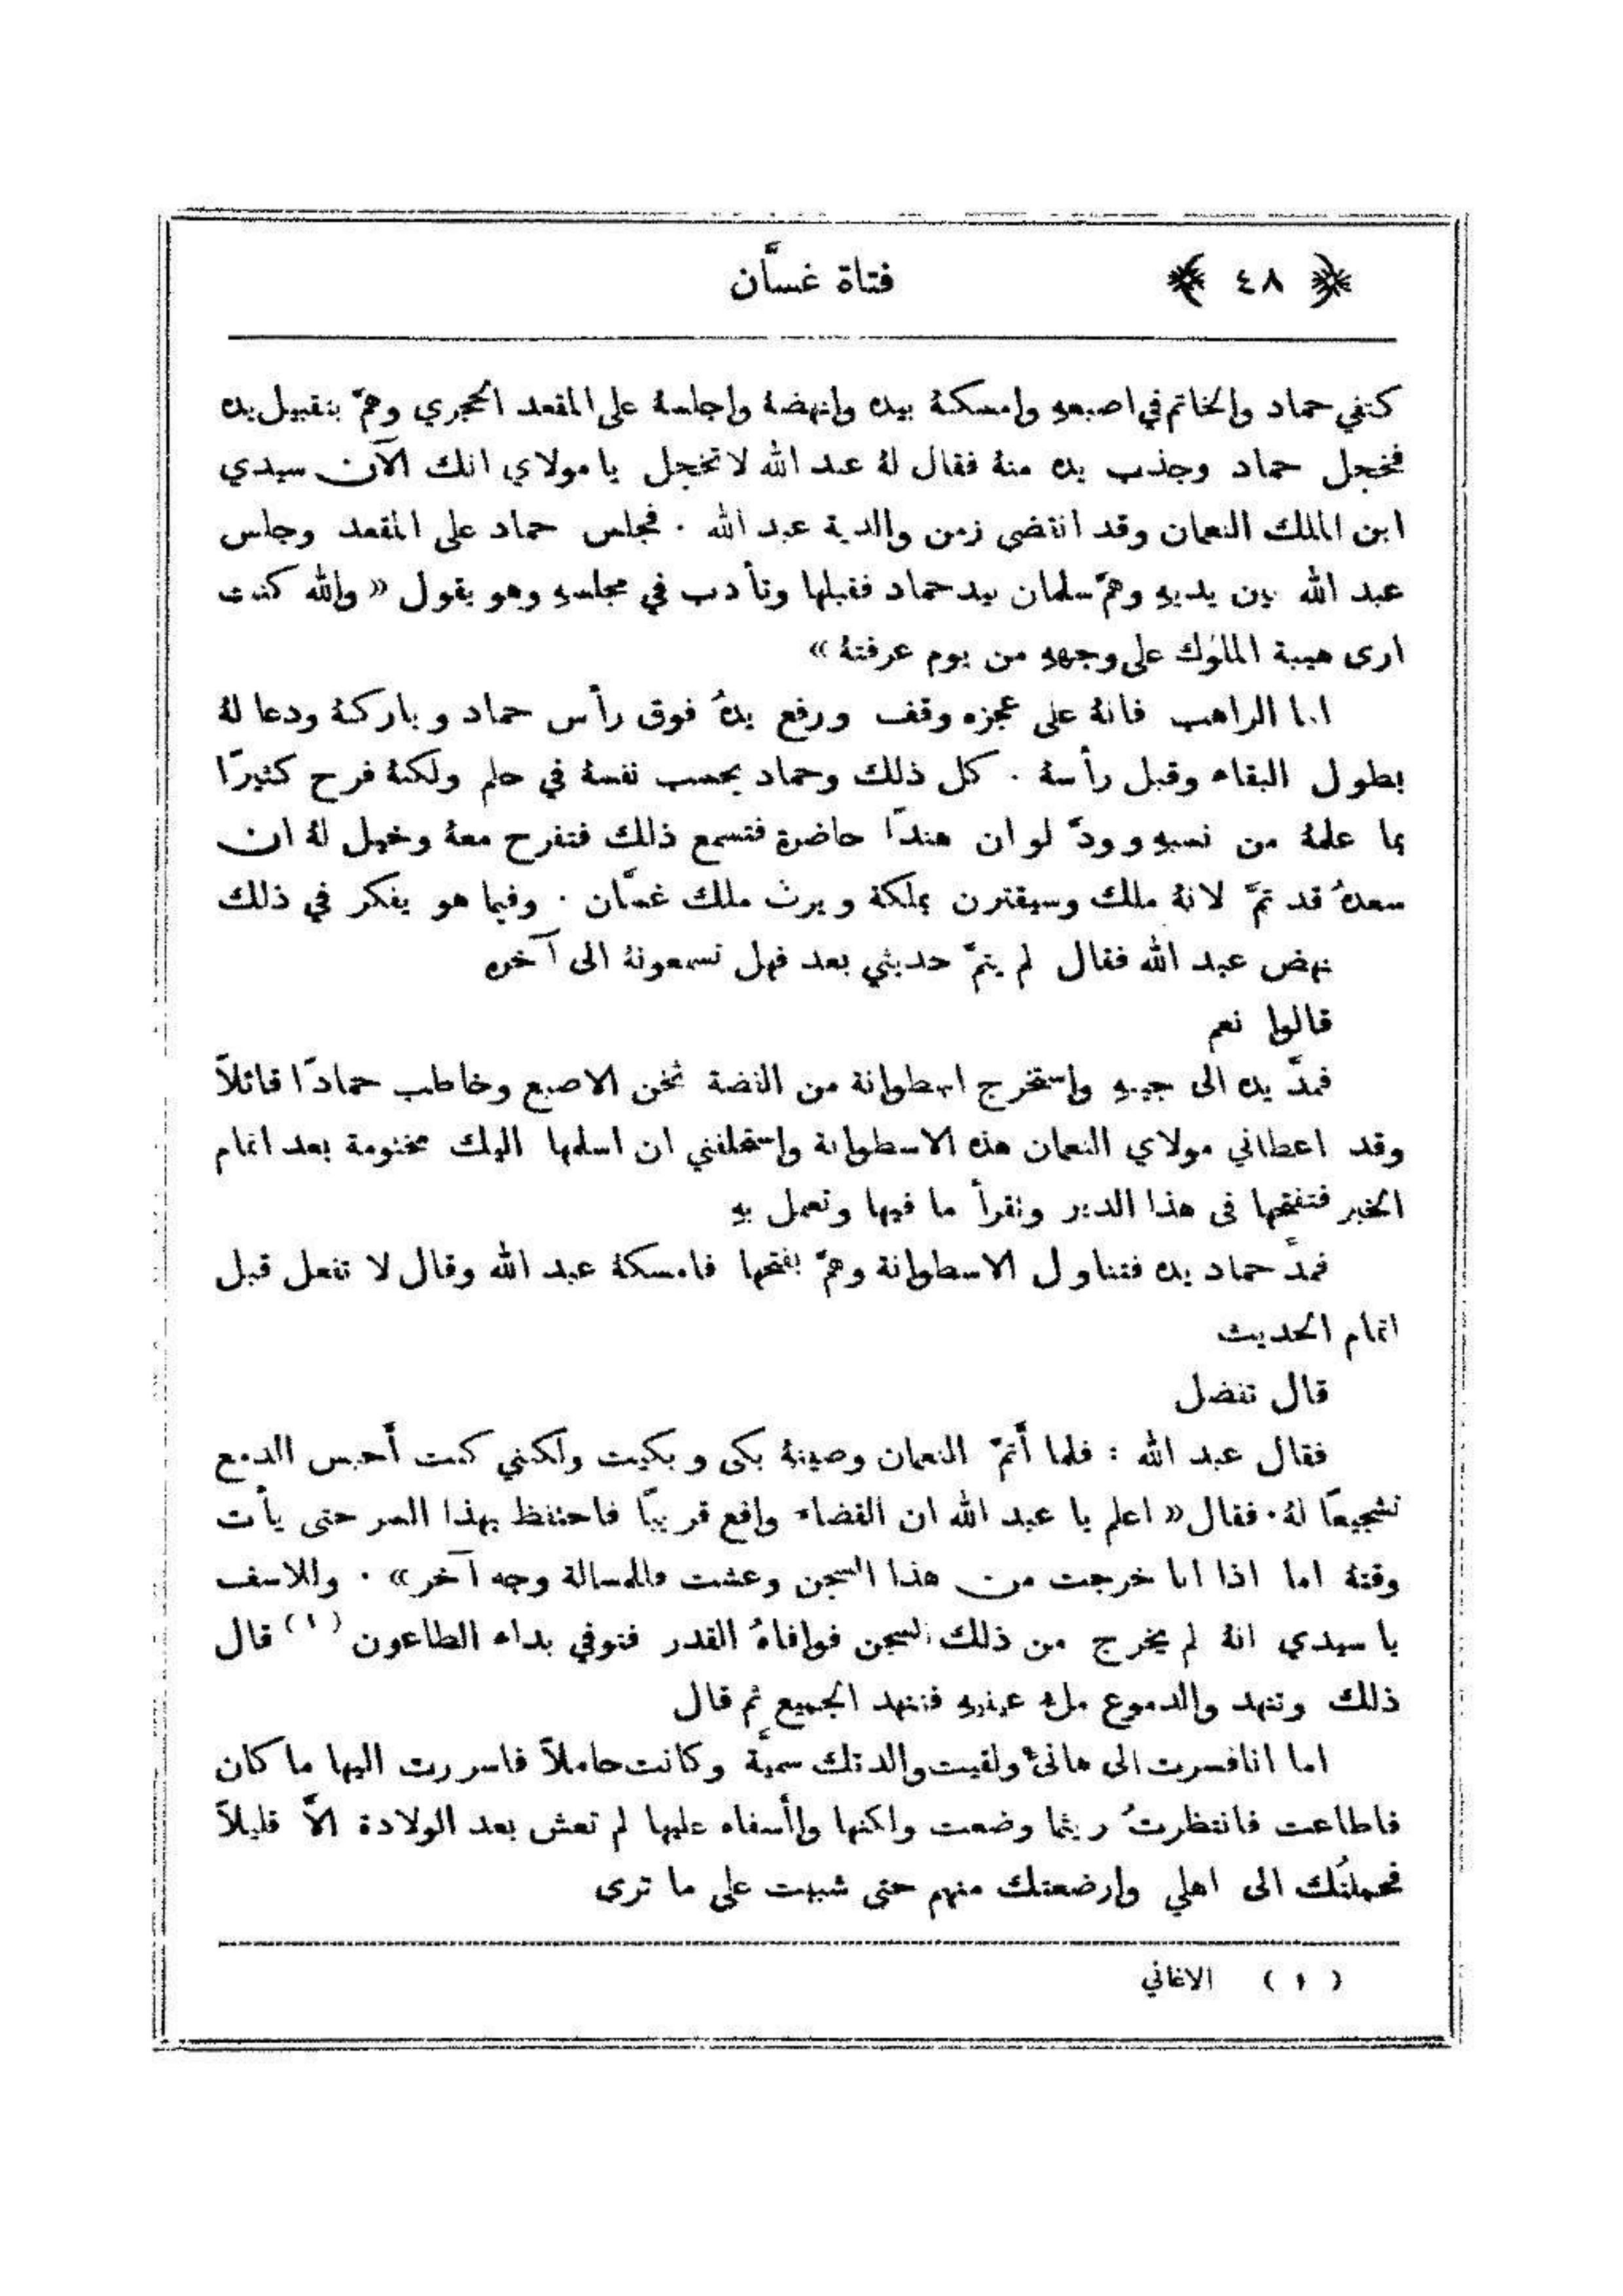 ﴿ ٤٨ ﴾ فتاة غسَّان
كتفي حماد والخاتم في اصبعهِ وامسكهُ بيده وانهضهُ واجلسهُ على المقعد الحجري وهمَّ بتقبيل يده
فخجل حماد وجذب يده منهُ فقال لهُ عبد الله لا تخجل يا مولاي انك الآن سيدي
ابن الملك النعمان وقد انقضى زمن والدية عبد الله . فجلس حماد على المقعد وجلس
عبد الله بين يديهِ وهمَّ سلمان بيد حماد فقبلها وتأدب في مجلسهِ وهو يقول « والله كنت
ارى هيبة الملوك على وجههِ من يوم عرفتهُ »
اما الراهب فانهُ على عجزه وقف ورفع يدهُ فوق رأس حماد وباركهُ ودعا لهُ
بطول البقاء وقبل رأسهُ . كل ذلك وحماد يحسب نفسهُ في حلم ولكنهُ فرح كثيرًا
بما علمهُ من نسبهِ وودَّ لو ان هندًا حاضرة فتسمع ذلك فتفرح معهُ وخيل لهُ ان
سعدهُ قد تمَّ لانهُ ملك وسيقترن بملكة ويرث ملك غسَّان . وفيما هو يفكر في ذلك
نهض عبد الله فقال لم يتمَّ حديثي بعد فهل تسمعونهُ الى آخره
قالوا نعم
فمدَّ يده الى جيبهِ واستخرج اسطوانة من الفضة ثخن الاصبع وخاطب حمادًا قائلاً
وقد اعطاني مولاي النعمان هذه الاسطوانة واستحلفني ان اسلمها اليك مختومة بعد اتمام
الخبر فتفتحها في هذا الدير وتقرأ ما فيها وتعمل بهِ
فمدَّ حماد يده فتناول الاسطوانة وهمَّ بفتحها فامسكهُ عبد الله وقال لا تفعل قبل
اتمام الحديث
قال تفضل
فقال عبد الله : فلما أتمَّ النعمان وصيتهُ بكى وبكيت ولكنني كنت أحبس الدمع
تشجيعًا لهُ . فقال « اعلم يا عبد الله ان القضاء واقع قريبًا فاحتفظ بهذا السر حتى يأت
وقتهُ اما اذا انا خرجت من هذا السجن وعشت فللمسالة وجه آخر » . وللاسف
يا سيدي انهُ لم يخرج من ذلك السجن فوافاهُ القدر فتوفي بداء الطاعون (١) قال
ذلك وتنهد والدموع ملء عينيهِ فتنهد الجميع ثم قال
اما انا فسرت الى هانئ ولقيت والدتك سميَّة وكانت حاملاً فاسررت اليها ما كان
فاطاعت فانتظرتُ ريثما وضعت ولكنها واأسفاه عليها لم تعش بعد الولادة الاَّ قليلاً
فحملتُك الى اهلي وارضعتك منهم حتى شببت على ما ترى
(١) الاغاني